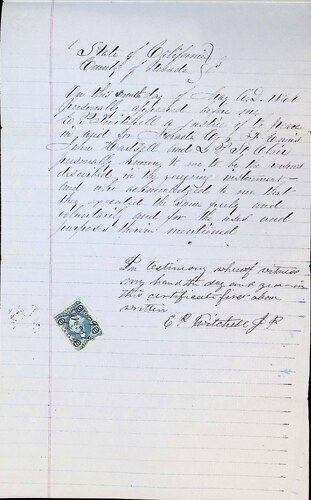 State of California
County of Nevada } S
On this day of A.D. 18
personally appeared before me
E. P. Twitchell a Justice of the peace
in and for Nevada Co
John Hartsell and L P St Clair
personally known to me to be the
described in the forgoing instrument
and who acknowledged to me that
they executed the same freely and
voluntarily and for the uses and
purposes therein mentioned
In testimony whereof witness
my hand the day and year in
this certificate first above
written
Twitchell J P